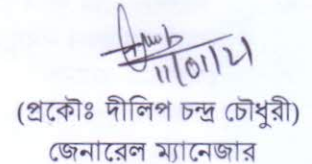 11/01/21
(প্রকৌঃ দীলিপ চন্দ্র চৌধুরী)
জেনারেল ম্যানেজার